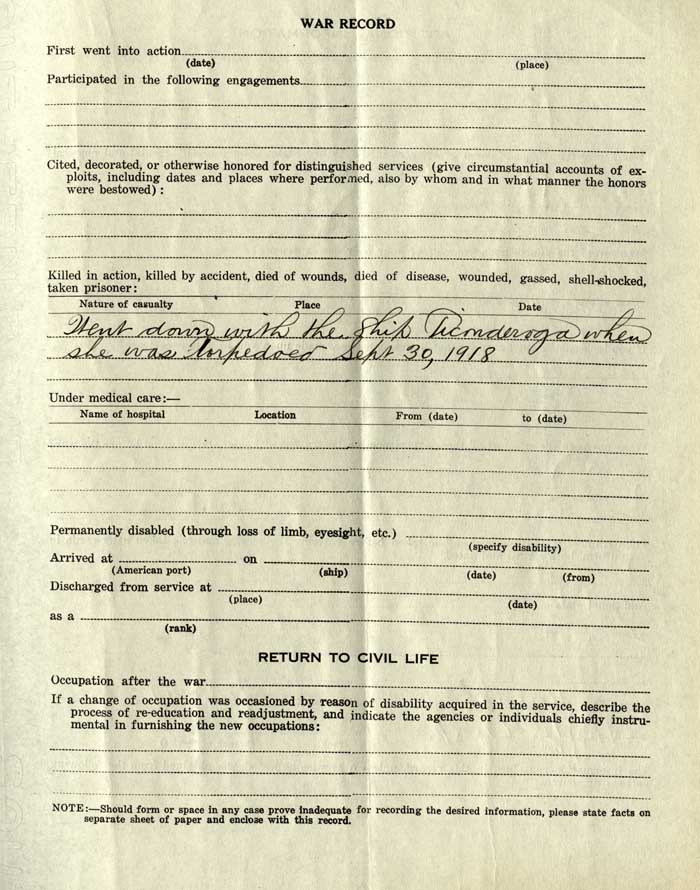 WAR RECORD
First went into action
(date) (place)
Participated in the following engagements
Cited, decorated, or otherwise honored for distinguished services (give circumstantial accounts of ex-
ploits, including dates and places where performed, also by whom and in what manner the honors
were bestowed) :
Killed in action, killed by accident, died of wounds, died of disease, wounded, gassed, shell-shocked,
taken prisoner:
Nature of casualty Place Date
Went down with the ship Ticonderoga when
she was torpedoed Sept 30, 1918
Under medical care:—
Name of hospital Location From (date) to (date)
Permanently disabled (through loss of limb, eyesight, etc.)
(specify disability)
Arrived at on
(American port) (ship) (date) (from)
Discharged from service at
(place) (date)
as a
(rank)
RETURN TO CIVIL LIFE
Occupation after the war
If a change of occupation was occasioned by reason of disability acquired in the service, describe the
process of re-education and readjustment, and indicate the agencies or individuals chiefly instru-
mental in furnishing the new occupations:
NOTE:—Should form or space in any case prove inadequate for recording the desired information, please state facts on
separate sheet of paper and enclose with this record.